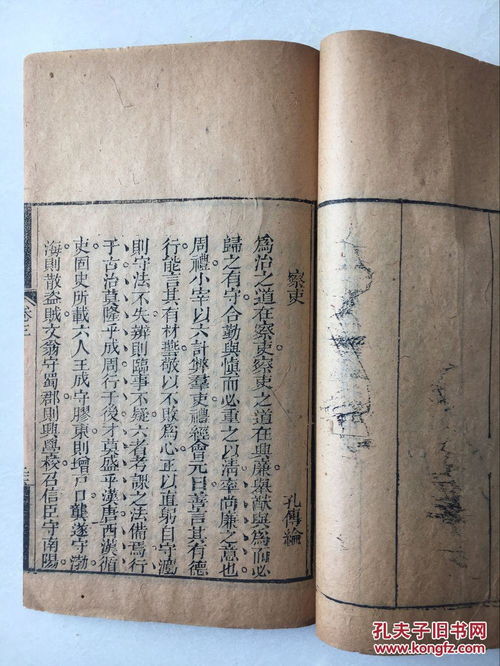 察吏
孔傳綸
爲治之道在察吏察吏之道在興廉與猷與爲而必
歸之有守合勤與愼而必重之以清率尚廉之意也
周禮小宰以六計弊羣吏禮經會元曰善言其有德
行能言其有材敬以不敗爲心正以直躬自守灋
則守法不失辨則臨事不疑六者考課之法備焉行
于古治莫隆乎成周行于後才莫盛乎漢唐西漢循
吏固史所載六人王成守膠東則增戸口龔遂守渤
海則散盜賊文翁守蜀郡則興學召信臣守南陽
卷三
孔夫子旧书网
www.kongfz.com